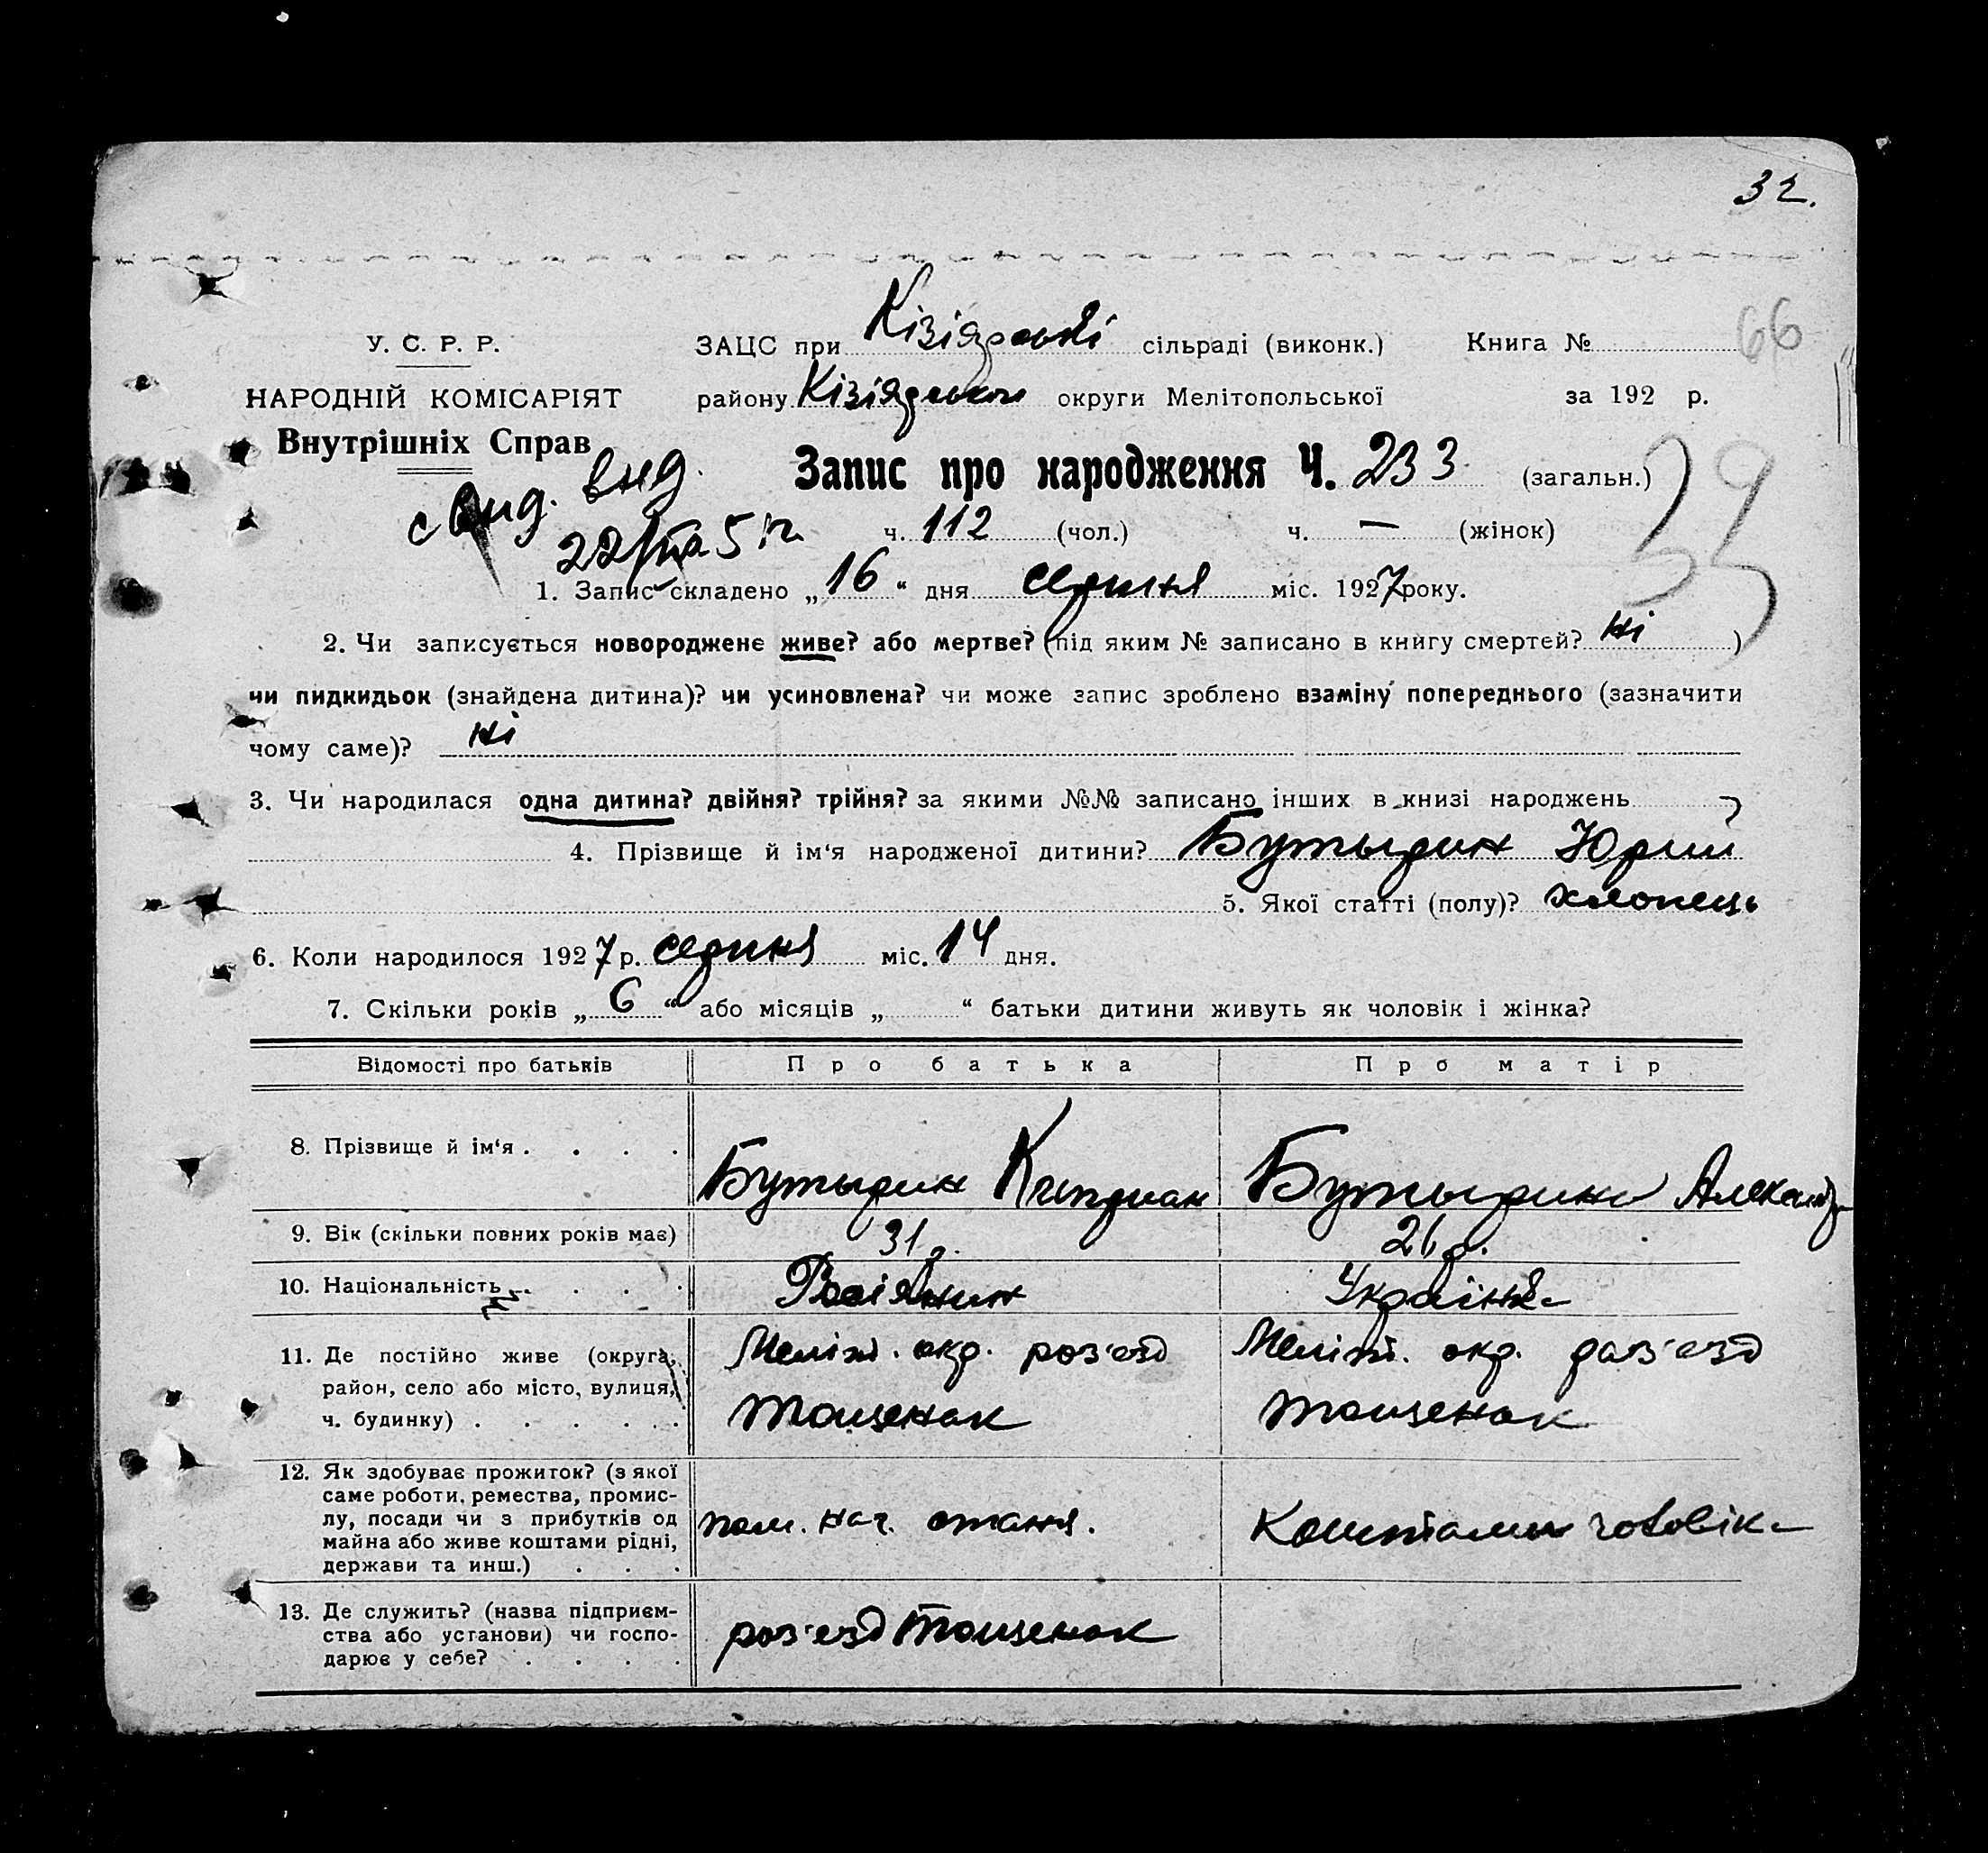 32.
У. С. Р. Р.
ЗАЦС при Кізіярській сільраді (виконк.) Книга № 66
НАРОДНІЙ КОМІСАРІЯТ
району Кізіярського округи Мелітопольської за 192 р.
Внутрішніх Справ
свид. выд.
Запис про народження Ч. 233 (загальн.)
39
ч. 112 (чол.) ч. — (жінок)
1. Запис складено „16“ дня серпня міс. 1927 року.
2. Чи записується новороджене живе? або мертве? (під яким № записано в книгу смертей? Ні )
чи пидкидьок (знайдена дитина)? чи усиновлена? чи може запис зроблено взаміну попереднього (зазначити
чому саме)? Ні
3. Чи народилася одна дитина? двійня? трійня? за якими №№ записано інших в книзі народжень
4. Прізвище й ім‘я народженої дитини? Бутырин Юрий
5. Якої статті (полу)? хлопець
6. Коли народилося 1927 р. серпня міс. 14 дня.
7. Скільки років „6“ або місяців „ “ батьки дитини живуть як чоловік і жінка?
Відомості про батьків Про батька Про матір
8. Прізвище й ім‘я . . . . Бутырин Киприан Бутырина Александр
9. Вік (скільки повних років має) 31 р. 26 р.
10. Національність . . . . Росіянин Українка
11. Де постійно живе (округа, Меліт. окр. роз'езд Меліт. окр. раз'езд
район, село або місто, вулиця, Тащенак Тащенак
ч. будинку) . . . . . .
12. Як здобуває прожиток? (з якої
саме роботи, ремества, промис-
лу, посади чи з прибутків од пом. нач. станц. Коштами чоловіка
майна або живе коштами рідні,
держави та инш.) . . .
13. Де служить? (назва підприєм-
ства або установи) чи госпо- роз'езд Тащенак
дарює у себе? . . . .